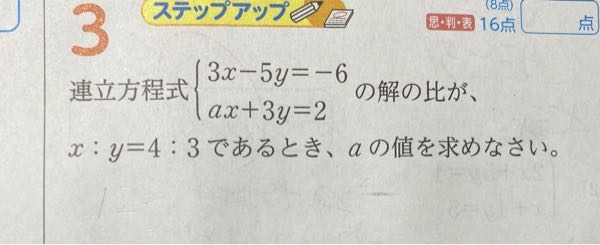 (8点)
3 ステップアップ 思・判・表 16点 点
連立方程式 { 3x−5y=−6 の解の比が、
ax+3y=2
x:y=4:3であるとき、aの値を求めなさい。